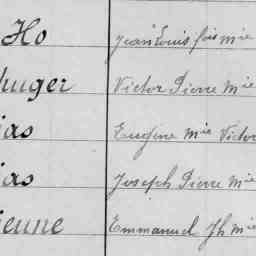 Ho Jean Louis fois Mie
huger Victor Pierre Mie
ias Eugène Mie Victor
ias Joseph Pierre Mie
ienne Emmanuel Jh Mie